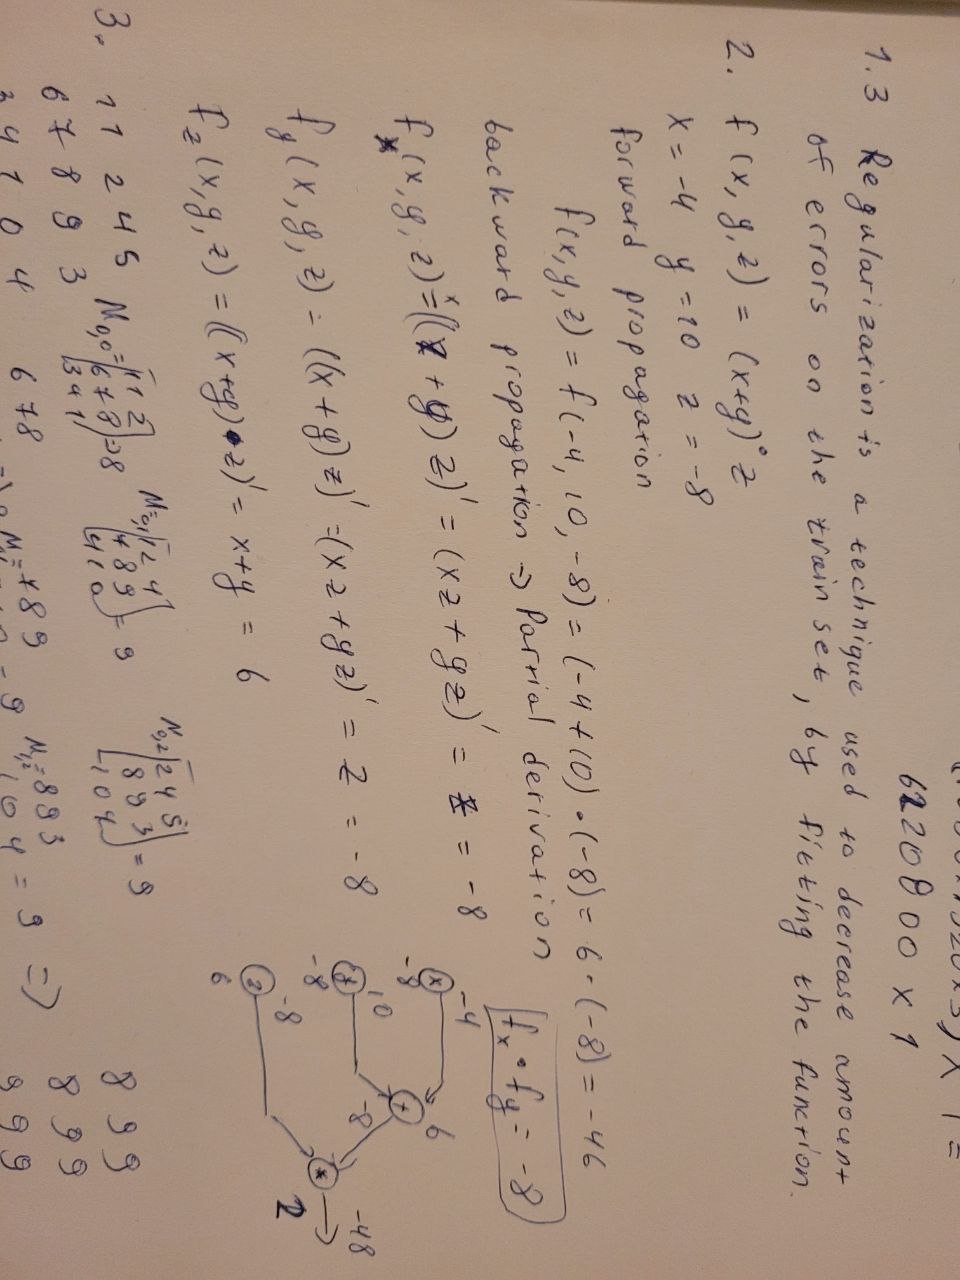 6220800 x 1
1.3 Regularization is a technique used to decrease amount
of errors on the train set, by fitting the function.
2. f(x,y,z) = (x+y)·z
x=-4 y=10 z=-8
forward propagation
f(x,y,z) = f(-4, 10, -8) = (-4+10)·(-8) = 6·(-8) = -46
backward propagation => Partial derivation
fx·fy = -8
fx(x,y,z) = ((x+y)z)' = (xz+yz)' = z = -8
fy(x,y,z) = ((x+y)z)' = (xz+yz)' = z = -8
fz(x,y,z) = ((x+y)·z)' = x+y = 6
x -4 -8
10 -8
+ 6 -8
z -8 6
* -48
3. 1 1 2 4 5
M0,0= 1 1 2
6 7 8
3 4 1 => 8
M0,1= 1 2 4
7 8 9
4 1 0 = 9
M0,2= 2 4 5
8 9 3
1 0 4 = 9
8 9 9
6 7 8 9 3
6 7 8
7 8 9
M1,2= 8 9 3
8 9 9
3 4 1 0 4
= 9
1 0 4 = 9 =>
9 9 9